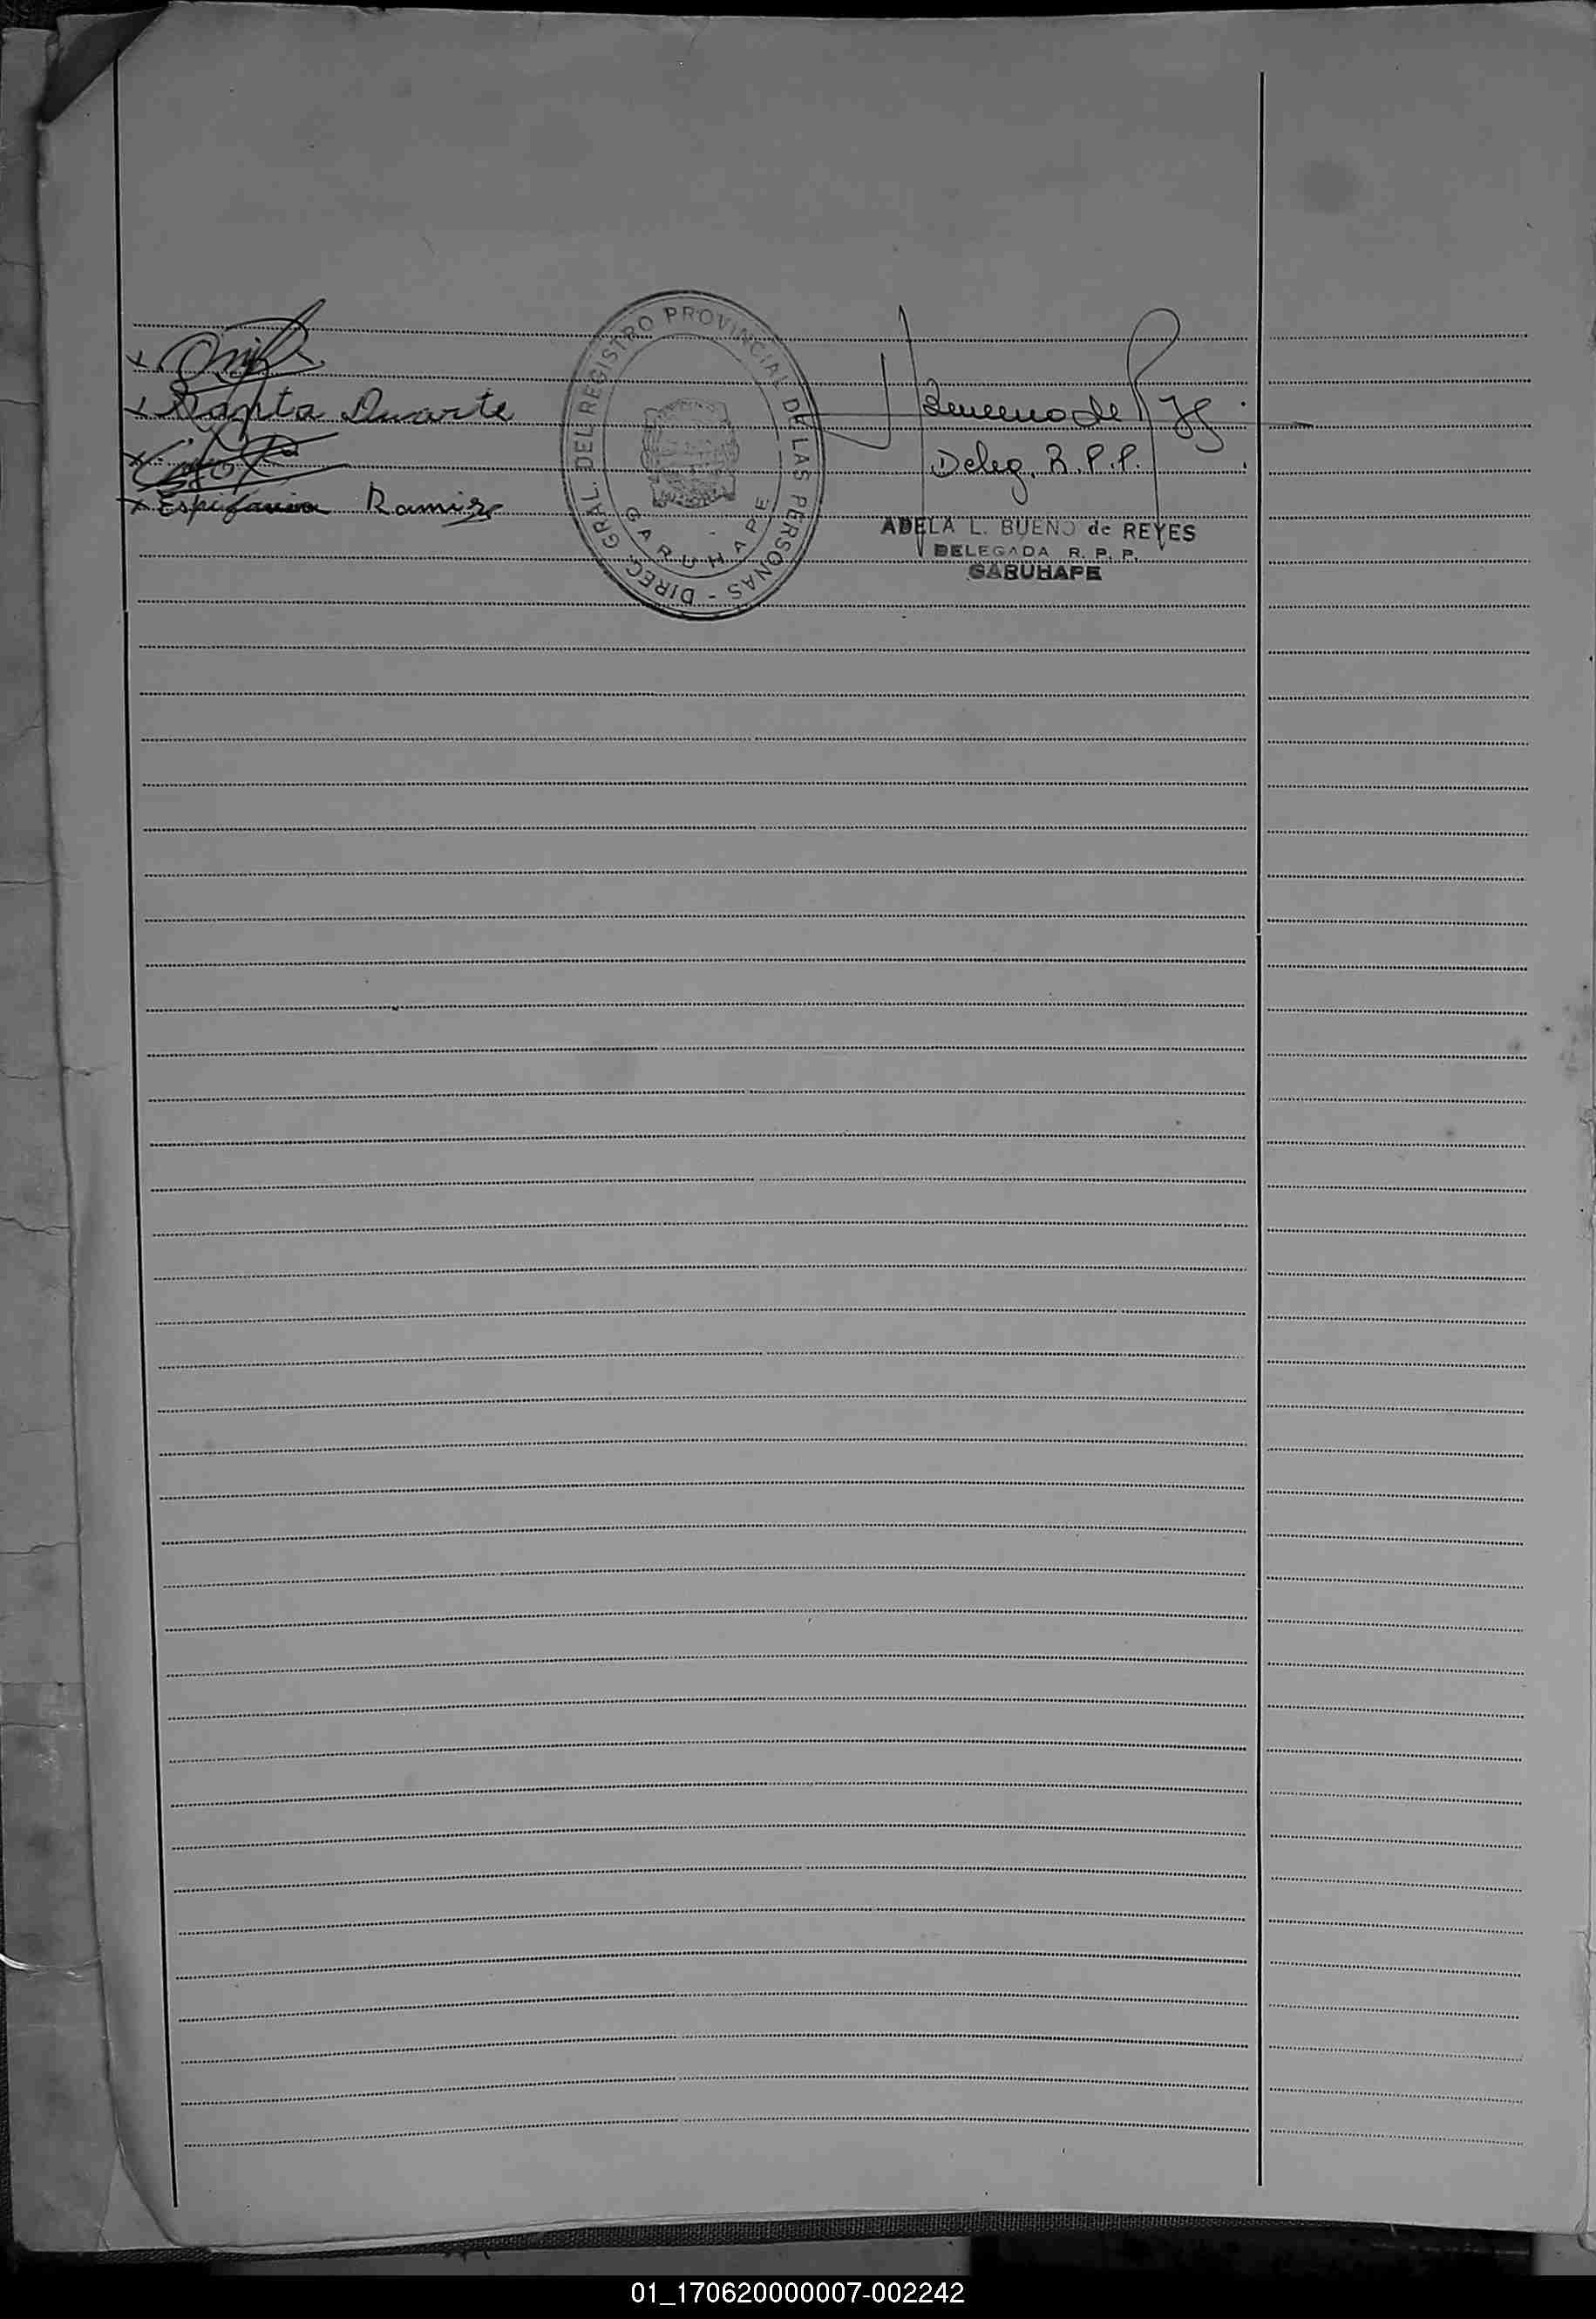 x
x Santa Duarte
x
x Espifania Ramirez
DIREC. GRAL. DEL REGISTRO PROVINCIAL DE LAS PERSONAS -
GARUHAPE
Bueno de Reyes
Deleg. R.P.P.
ADELA L. BUENO de REYES
DELEGADA R. P. P.
GARUHAPE
01_170620000007-002242